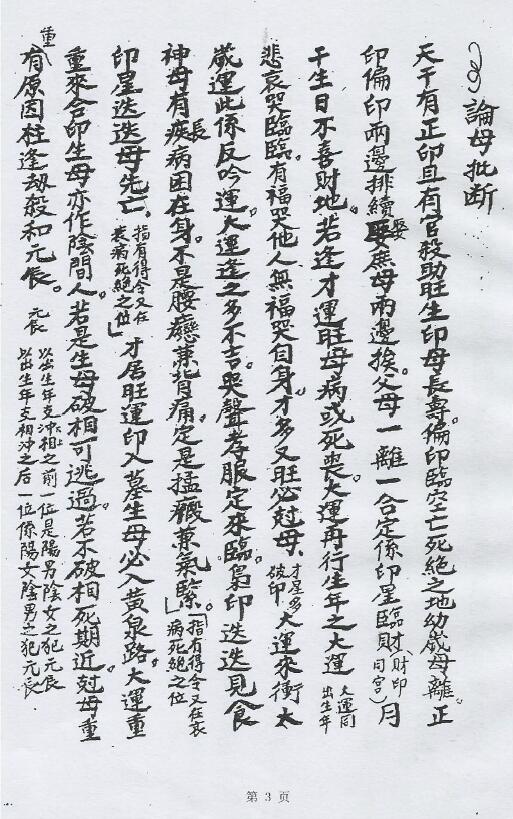 論母批断
天干有正印且有官殺助旺生印母長壽。偏印臨空亡死絕之地幼歲母離。正
印偏印兩邊排續娶庶母兩邊挨。父母一離一合定係印星臨財（財印同宮）月
干生日不喜財地。若逢才運旺母病或死喪。大運再行生年之大運 大運同出生年
悲哀哭臨臨。有福哭他人無福哭自身。才多又旺必尅母、才星多破印 大運來衝太
歲運此係反吟運。大運逢之多不吉。哭聲孝服定來臨。梟印迭迭見食
神母有長疾病困在身。不是腰癋兼背痛。定是兼氣緊。指有得令又在衰病死絕之位
印星迭迭母先亡。指有得令又在衰病死絕之位 才居旺運印入墓生母必入黃泉路。大運重
重來合印生母亦作陰間人。若是生母破相可逃過。若不破相死期近。尅母重
重有原因柱逢劫殺和元辰。 元辰 以出生年支相冲之前一位是陽男陰女之犯元辰
以出生年支相冲之后一位係陽女陰男之犯元辰
第 3 页